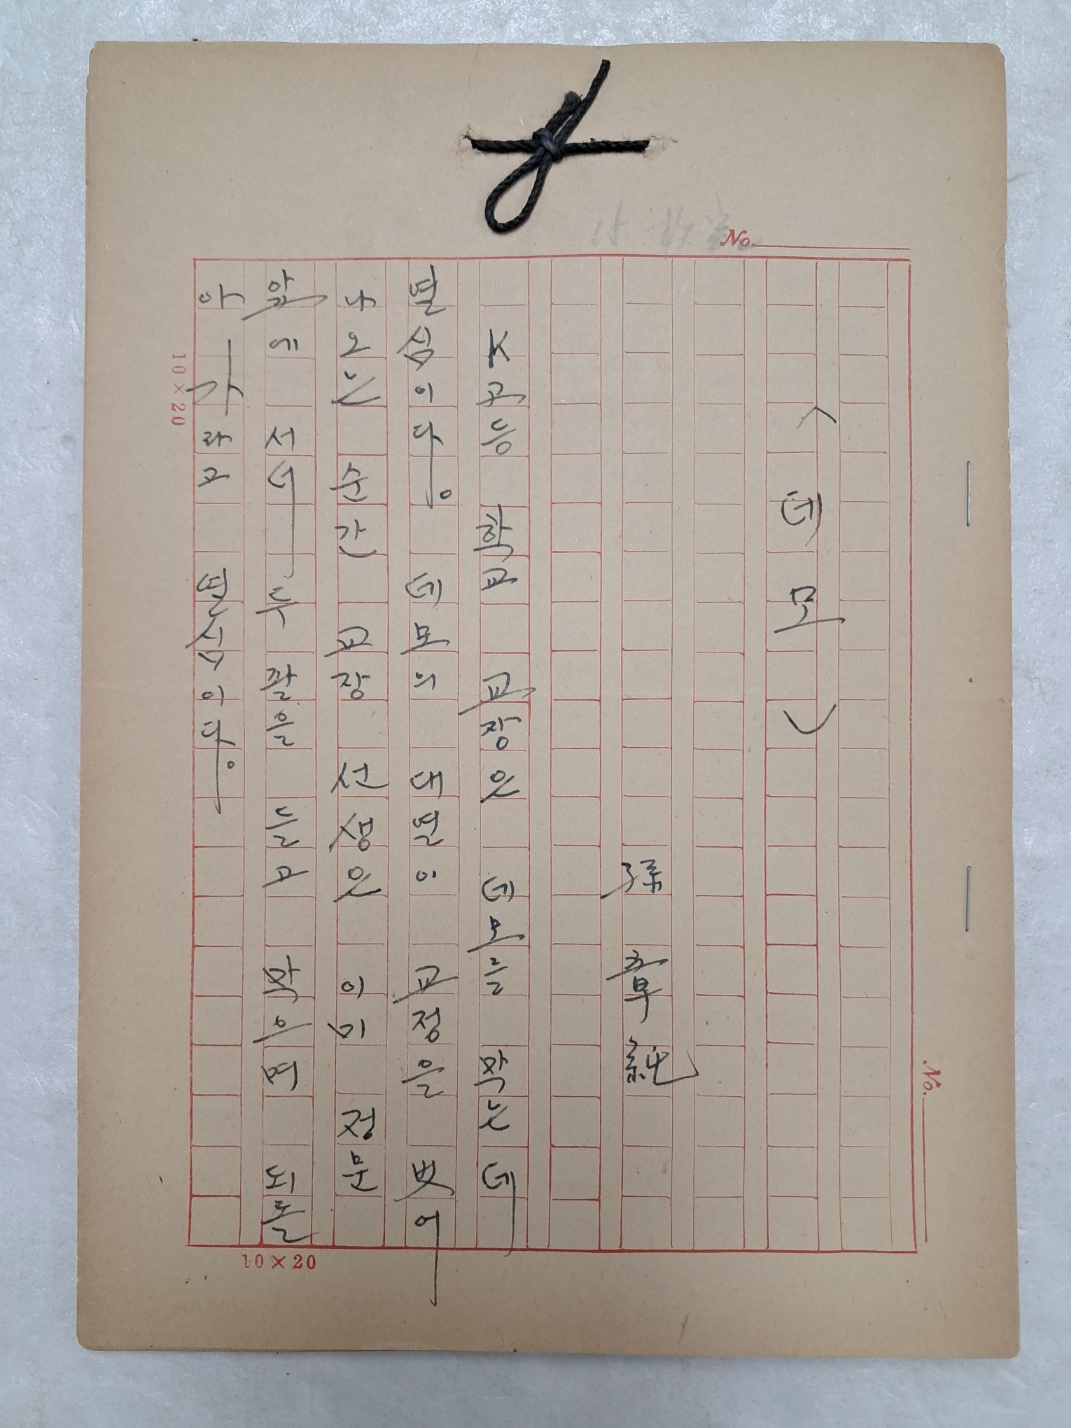 No.
〈데모〉
孫章純
K고등 학교 교장은 데모를 막는데
열심이다. 데모의 대열이 교정을 벗어
나오는 순간 교장 선생은 이미 정문
앞에 서서 두 팔을 들고 막으며 되돌
아가라고 열심이다.
10×20
10×20
No.